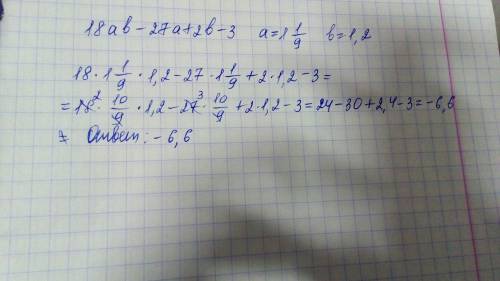 18ab-27a+2b-3 a=1 1/9 b=1,2
18·1 1/9·1,2-27·1 1/9+2·1,2-3=
=18²·10/9·1,2-27³·10/9+2·1,2-3=24-30+2,4-3=-6,6
Ответ: -6,6